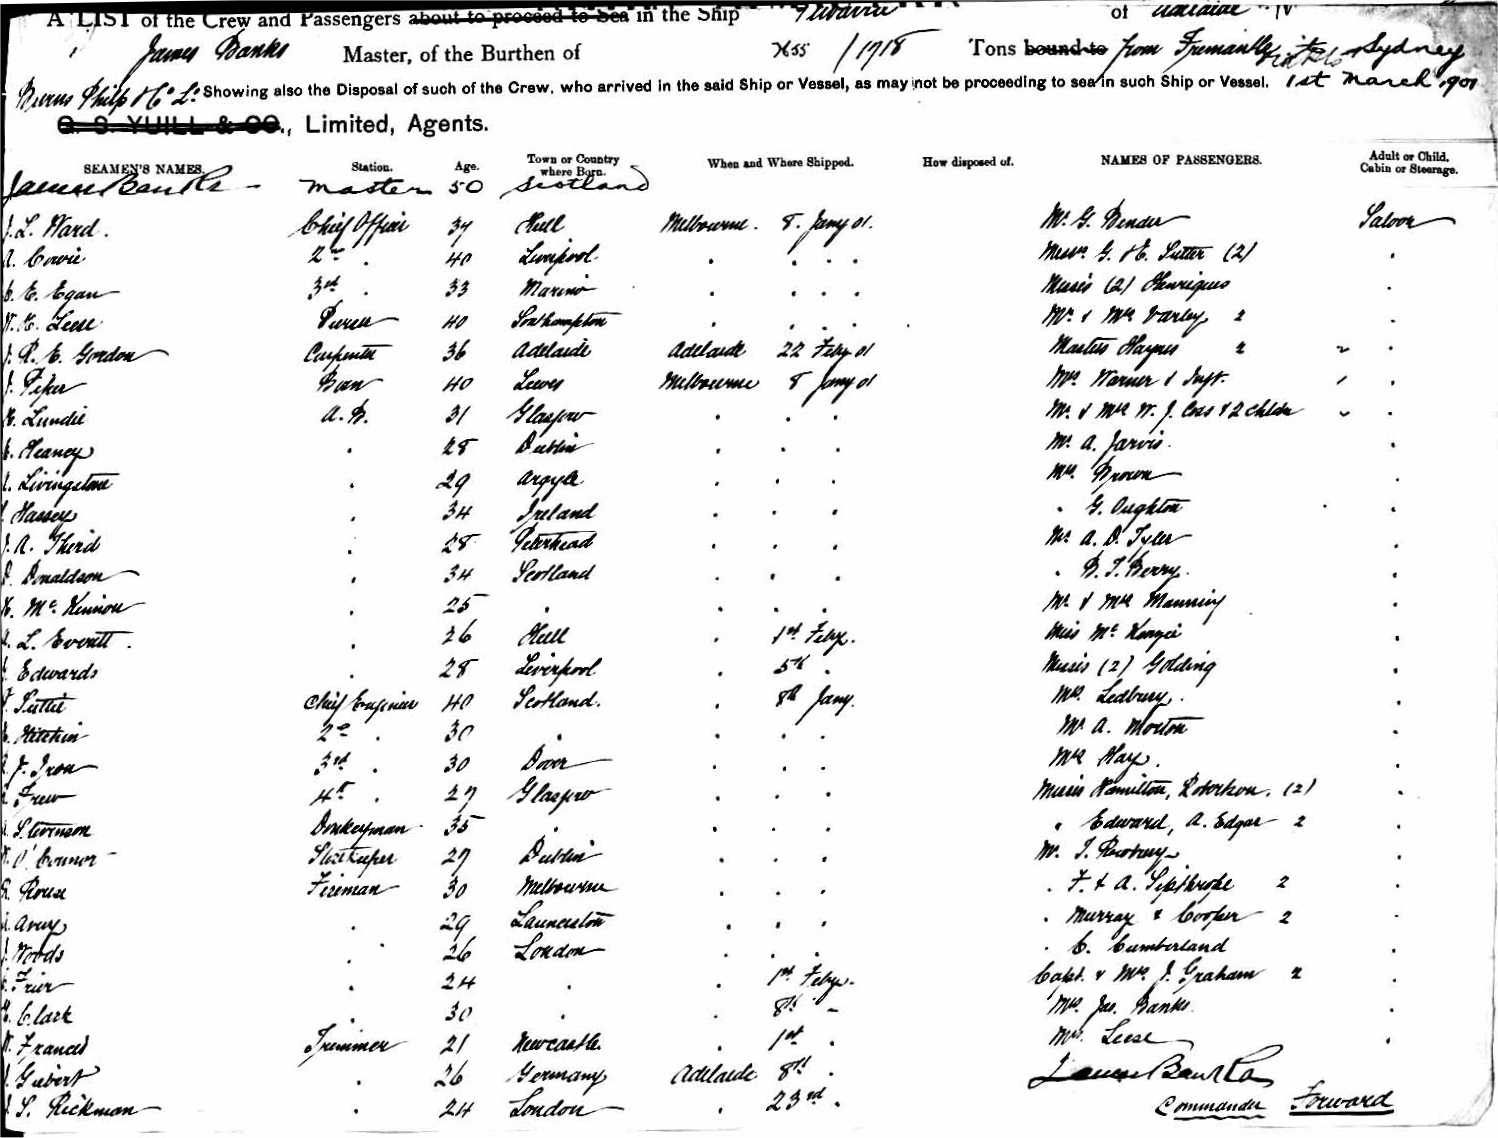 A LIST of the Crew and Passengers about to proceed to Sea in the Ship of Adelaide
James Banks Master, of the Burthen of 1718 Tons bound to from Fremantle to Sydney
Burns Philp & Co Ld Showing also the Disposal of such of the Crew, who arrived in the said Ship or Vessel, as may not be proceeding to sea in such Ship or Vessel. 1st March 1901
G. S. YUILL & CO., Limited, Agents.
SEAMEN'S NAMES. Station. Age. Town or Country where Born. When and Where Shipped. How disposed of. NAMES OF PASSENGERS. Adult or Child, Cabin or Steerage.
James Banks Master 50 Scotland
J. L. Ward. Chief Officer 37 Hull Melbourne. 8. Jany 01. Mr. G. Bender Saloon
A. Cowie 2nd . 40 Liverpool . . . . Messrs. G. & E. Sutter (2) .
E. Egan 3rd . 33 Marino . . . . Misses (2) Henriques .
Leese Purser 40 Southampton . . . . Mr. & Mrs Varley 2 .
J. R. E. Gordon Carpenter 36 Adelaide Adelaide 22 Feby 01 Masters Haynes 2 .
J. Piper Bosn 40 Lewes Melbourne 8 Jany 01 Mrs. Warner & Inft. .
Lundie A.B. 31 Glasgow . . . Mr. & Mrs W. J. Coss & 2 chldn .
Heaney . 28 Dublin . . . Mr. A. Jarvis. .
Livingstone . 29 Argyle . . . Mrs. Brown .
Hassey . 34 Ireland . . . . G. Oughton .
J. A. Therd . 28 Peterhead . . . Mr. A. D. Tyler .
D. Donaldson . 34 Scotland . . . . B. T. Berry. .
McKinnon . 25 . . . . Mr. & Mrs Manning .
L. Everitt . . 26 Hull . 1st Feby. Miss McKenzie .
Edwards . 28 Liverpool . 5th . Misses (2) Golding .
Suttie Chief Engineer 40 Scotland. . 8th Jany. Mrs. Ledbury. .
Hitchin 2nd . 30 . . . . Mr A. Morton .
J. Iron 3rd . 30 Dover . . . Mrs Hay. .
Frew 4th . 27 Glasgow . . . Misses Hamilton, Robertson. (2) .
Stevenson Donkeyman 35 . . . . " Edward, A. Edgar 2 .
O'Connor Storekeeper 27 Dublin . . . Mr. T. .
Rouse Fireman 30 Melbourne . . . . F. & A. 2 .
Avery . 29 Launceston . . . . Murray & Cooper 2 .
J. Woods . 26 London . . . . C. Cumberland
Frier . 24 . . 1st Feby. Capt. & Mrs. J. Graham 2 .
Clark . 30 . . 8th Mrs. Jas. Banks .
W. Francis Trimmer 21 Newcastle . 1st . Mrs. Leese .
J. Giebert . 26 Germany Adelaide 8th . James Banks
S. Rickman . 24 London . 23rd . Commander Forward